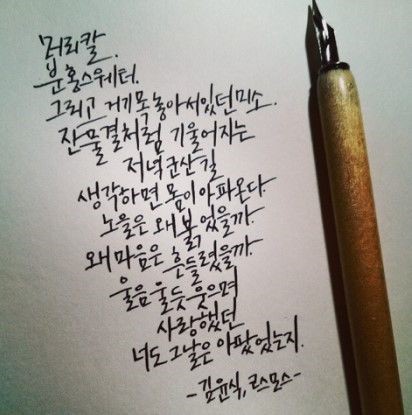 머리칼.
분홍스웨터.
그리고 거기 못놓아 서있던 미소.
잔물결처럼 기울어지는
저녁 군산길
생각하면 몸이 아파온다
노을은 왜 붉었을까.
왜 마음은 흔들렸을까.
울음 울듯 웃으며
사랑했던
너도 그날은 아팠었는지.
-김윤식, 코스모스-